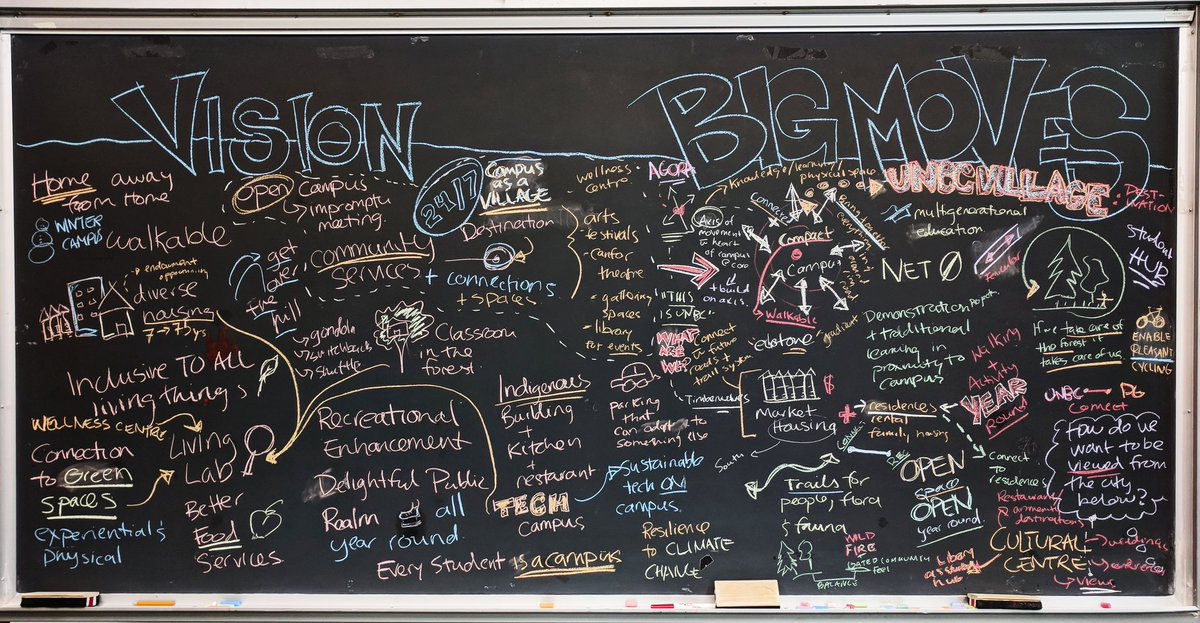 VISION
BIG MOVES
Home away
from Home
WINTER
CAMPUS
walkable
endowment
opportunity
diverse
housing
7 → 75 yrs
Inclusive TO All
living things
WELLNESS CENTRE
Connection
to Green
spaces
experiential &
physical
Living
Lab
Better
Food
Services
open Campus
impromptu
meeting.
get
over
the
hill
community
services
gondola
switchback
shuttle
Classroom
in the
forest.
Recreational
Enhancement
Delightful Public
Realm all
year round.
Every Student is a campus
24/7
Campus
as a
VILLAGE
Destination
+ connections
+ spaces
wellness
centre.
arts
festivals
cantor
theatre
gathering
spaces
library
for events
Indigenous
Building
+
Kitchen
+
restaurant
TECH
campus
Sustainable
tech ON
campus.
Resilience
to CLIMATE
CHANGE
parking
that
can adapt to
something else
AGORA
Axis of
movement
to heart
of campus
@ core
+ build
on axis.
"THIS
IS UNBC"
WHAT
ARE
WE?
connect
w future
roads +
trail system
Knowledge/learning/
physical space
Connect
Bring teacher
everywhere
compact
Campus
Walkable
"edotone"
gradient
Timberworks
Market
Housing
$
South
Trails for
people, flora
& fauna
WILD
FIRE
GATED COMMUNITY
feel
BALANCE
UNBC VILLAGE
DESTINATION
multigenerational
education
NET 0
Demonstration projects
+ traditional
learning in
proximity to
campus
residences
rental
family housing
OPEN
space
OPEN
year round.
Library
as student
hub
Walking
+
Activity
YEAR
Round
Connect
to
residences
Restaurant
destinations
CULTURAL
CENTRE
weddings
conferences
views
Student
HUB
If we take care of
the forest it
takes care of us
ENABLE
PLEASANT
CYCLING
UNBC PG
Connect
How do we
want to be
viewed from
the city
below?